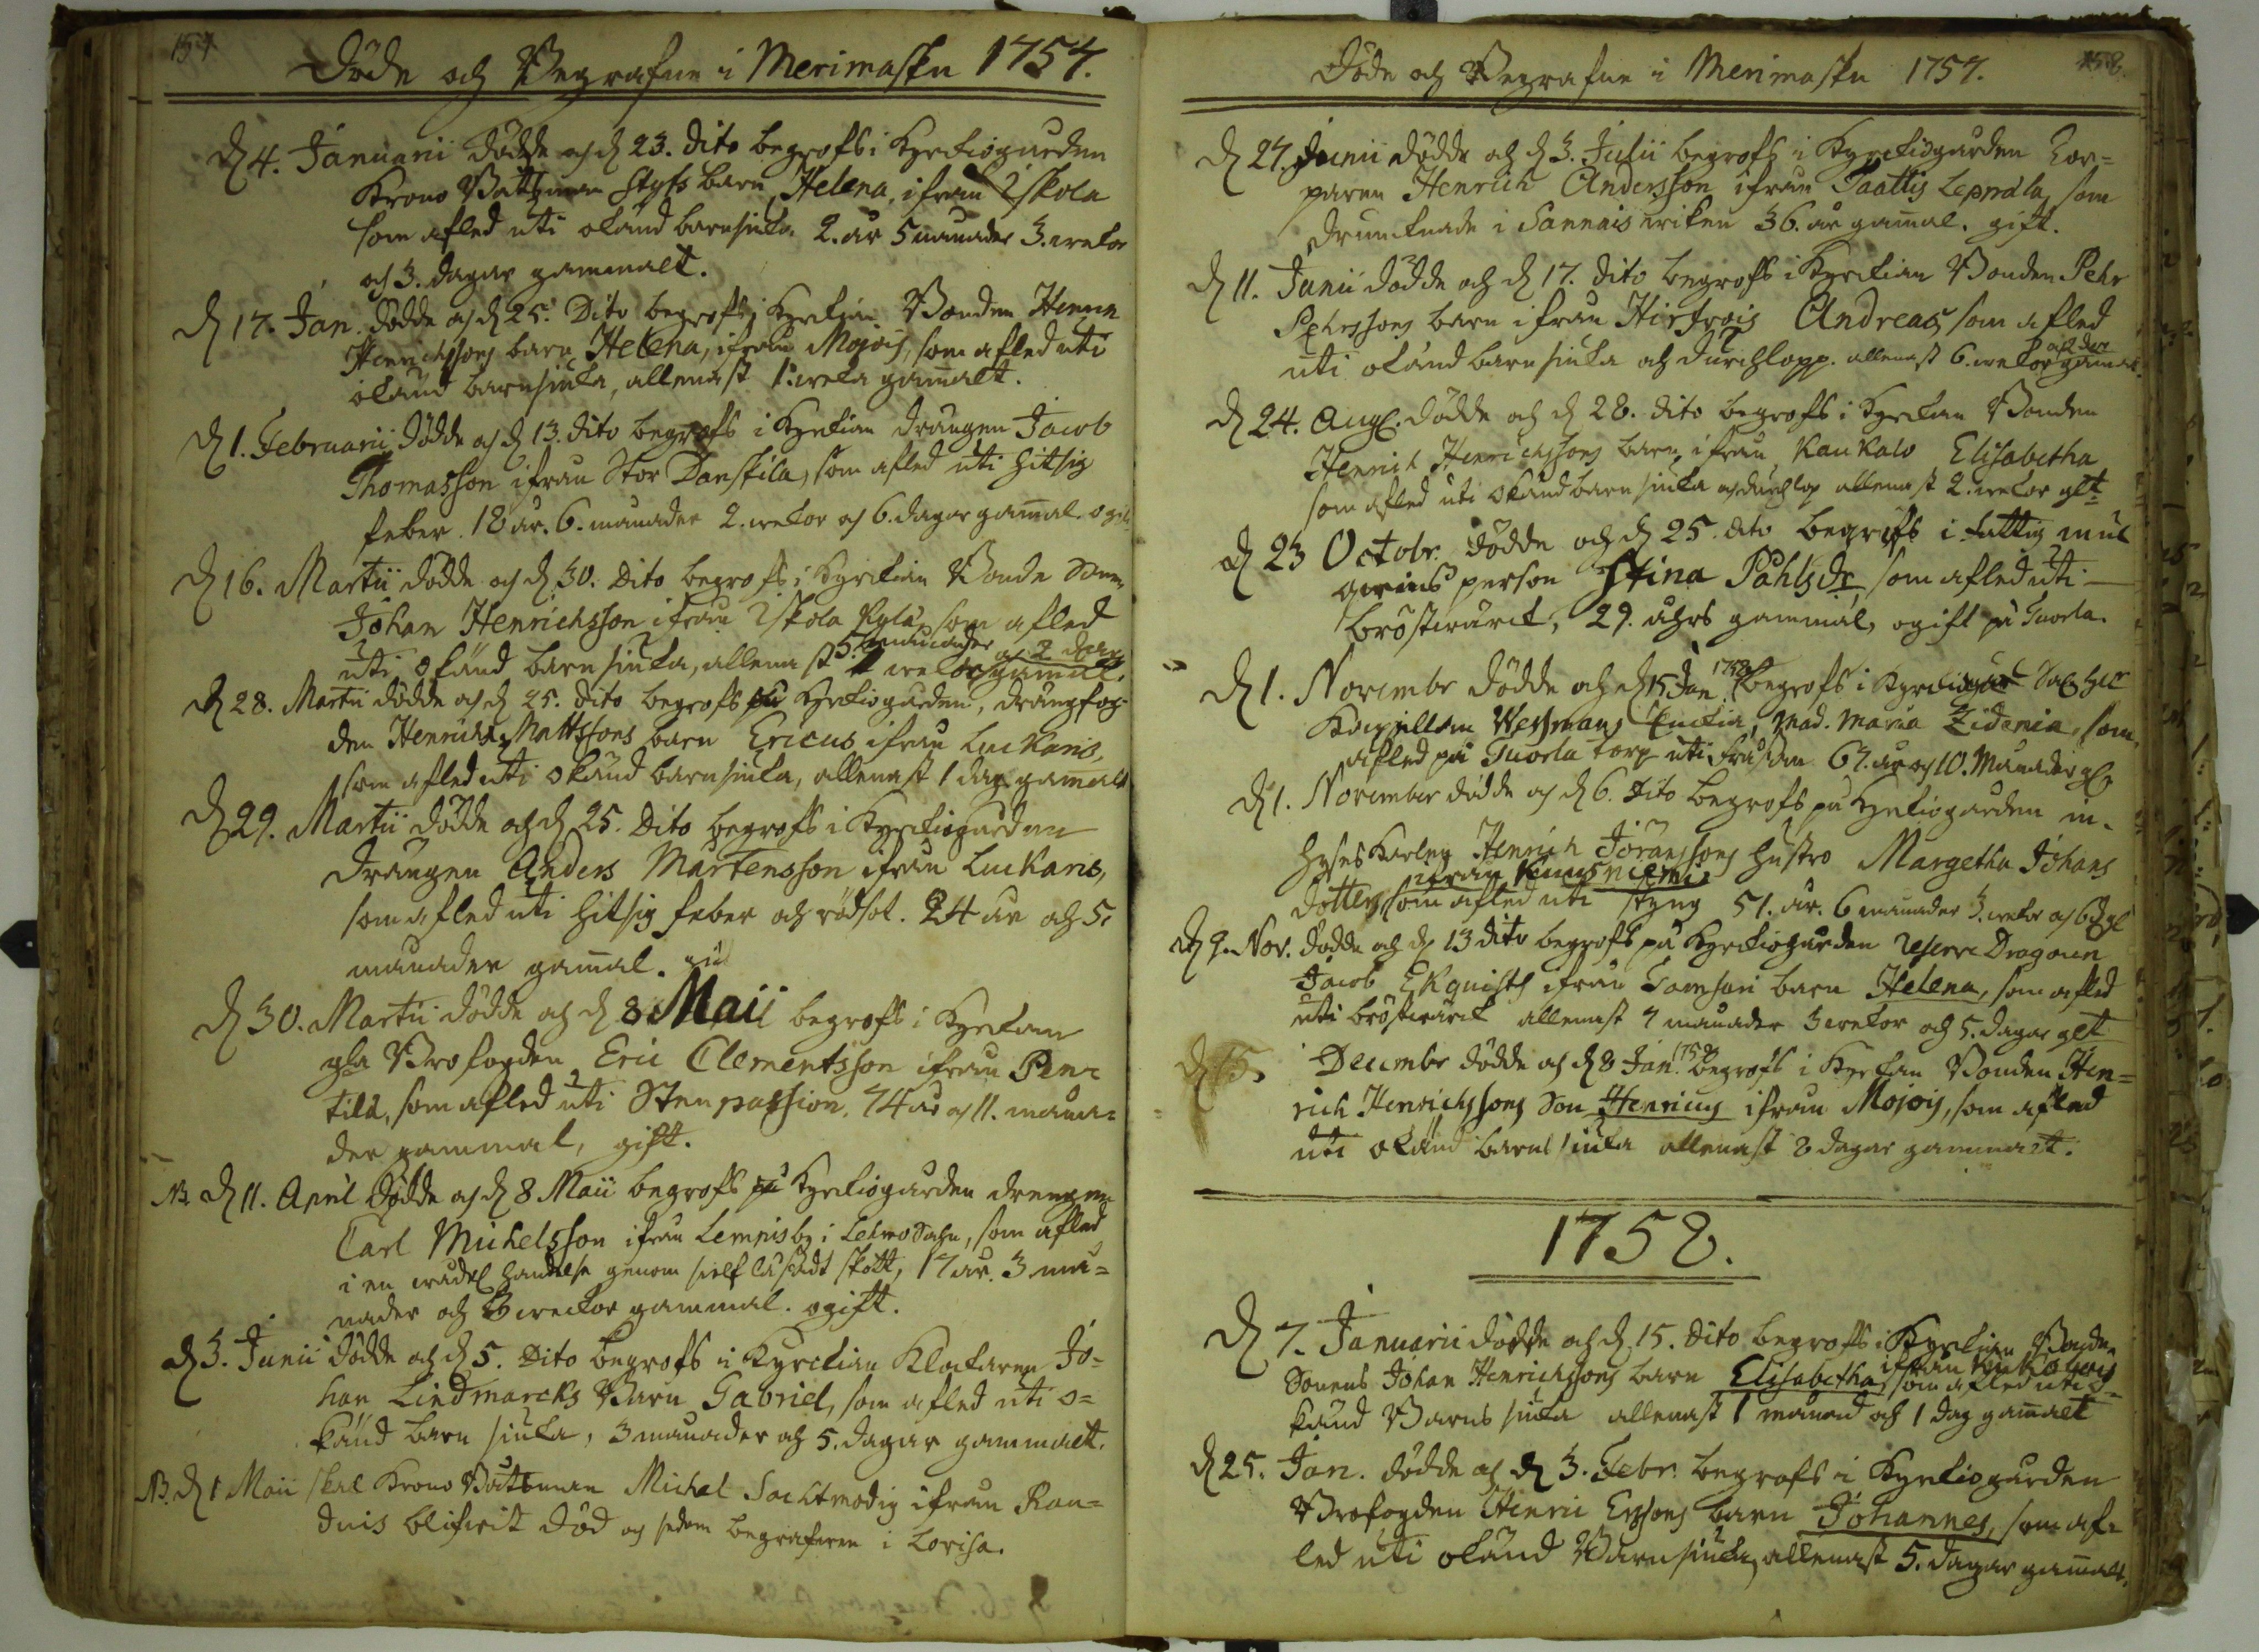 157
Döde och Begrafne i Merimasku 1757.
D 4. Januarii dödde och d 23. dito begrofs i Kyrkiogården
Krono Båtsman barn, Helena, ifrån Iskola
som afled uti okänd barnsiuka 2. år 5 månader 3. wekor
och 3. dagar gammalt.
D 17. Jan. dödde och d 25. Dito begrofs i Kyrkian Bonden Henric
Henrichssons barn Helena, ifrån Mojois, som afled uti
okänd barnsiuka, allenast 1. weka gamalt.
D 1. Februarii dödde och d 13. dito begrofs i Kyrkian drängen Jacob
Thomasson ifrån Stor Danskila, som afled uti hitsig
feber. 18 år. 6. månader 2. wekor och 6. dagar gammal. ogift
D 16. Martii dödde och d 30. Dito begrofs i Kyrkian Bonde Sonen
Johan Henrichsson ifrån Iskola Kylä, som afled
uti okänd barnsiuka, allenast 5. månader wekor och 2 dag. gamal.
D 28. Martii dödde och d 25. Dito begrofs på Kyrkiogården, drängfog-
den Henrich Mattssons barn Ericus ifrån Luckaris,
som afled uti okänd barnsiuka, allenast 1 dag gamalt
D 29. Martii dödde och d 25. Dito begrofs i Kyrkiogården
drängen Anders Mårtensson ifrån Luckaris,
som afled uti hitsig feber och rödsot. 24 år och 5.
månader gamal.
D 30. Martii dödde och d 8 Maii begrofs i Kyrkian
gla Brofogden Eric Clementsson ifrån Pent
tilä, som afled uti Stenpassion. 74 år och 11. måna-
der gammal, gift.
NB D 11. April dödde och d 8 Maii begrofs på Kyrkiogården drengen
Carl Michelsson ifrån Lempisby i Lemo Sochn, som afled
i en händelse genom sielf skott, 17 år. 3 må-
nader och 3 weckor gammal. ogift.
D 3. Junii dödde och d 5. Dito begrofs i Kyrckian Klockaren Jo-
han Lindmarcks Barn Gabriel, som afled uti o-
känd barn siuka, 3 månader och 5. dagar gammalt.
NB. D 1 Maii skal Krono Båtsman Michel Sachtmodig ifrån Ran-
duis blifwit död och sedan begrafwen i Lovisa.
158.
Döde och Begrafne i Merimasku 1757.
D 27. Junii dödde och d 3. Julii begrofs i Kyrckiogården Tor-
paren Henrich Andersson ifrån Paattis Leppälä, som
drunknade i Sannais wiken 36. år gamal. gift.
D 11. Junii dödde och d 17. dito begrofs i Kyrckian Bonden Pehr
Pehrssons barn ifrån Hirfrois Andreas, som afled
uti okänd barn siuka och durchlopp. allenast 6. wekor gamalt.
D 24. Aug. dödde och d 28. dito begrofs i Kyrkian Bonden
Henrich Henrichssons barn, ifrån Kaukalo Elisabetha
som afled uti okänd barn siuka och durchlop allenast 2. wekor glt
D 23 Octobr. dödde och d 25. dito begrofs i fattig mul
person Stina Påhlsdr, som afled uti
bröstwärck, 29. åhrs gammal, ogift på Tuorla.
D 1. November dödde och d 15 Jan 1758 begrofs i Kyrckiogår Sal. herr
Kapellan Wessmans Enckia, Mad. Maria Zidenia, som
afled på Tuorla torp uti 67. år och 10. Månader gl
D 1. November dödde och d 6. Dito begrofs på Kyrkiogården in-
hyses Karlen Henrich Jöranssons hustro Margetha Johans
dotter, ifrån Kuusniemi som afled uti styng 51. år. 6 månader 3. wekor och 6 d gl
D 9. Nov. dödde och d 13 dito begrofs på Kyrckiogården Reserve Dragoun
Jacob Ekquists ifrån Samsari barn Helena, som afled
uti bröstwärck allenast 7 månader 3 wekor och 5. dagar glt
D 15. December dödde och d 8 Jan. 1758 begrofs i Kyrkian Bonden Hen-
rich Henrichssons Son Henricus ifrån Mojois, som afled
uti okänd barnsiuka allenast 8 dagar gammalt.
1758.
D 7. Januarii dödde och d 15. Dito begrofs i Kyrkian Bonde
Sonens Johan Henrichssons barn Elisabetha, ifrån som afled uti o-
känd Barns siuka allenast 1 månad och 1 dag gamalt
D 25. Jan. dödde och d 3. Febr. begrofs i Kyrkiogården
Brofogden Henric Erssons barn Johannes, som af-
led uti okänd Barnsiuka, allenast 5. dagar gamalt.